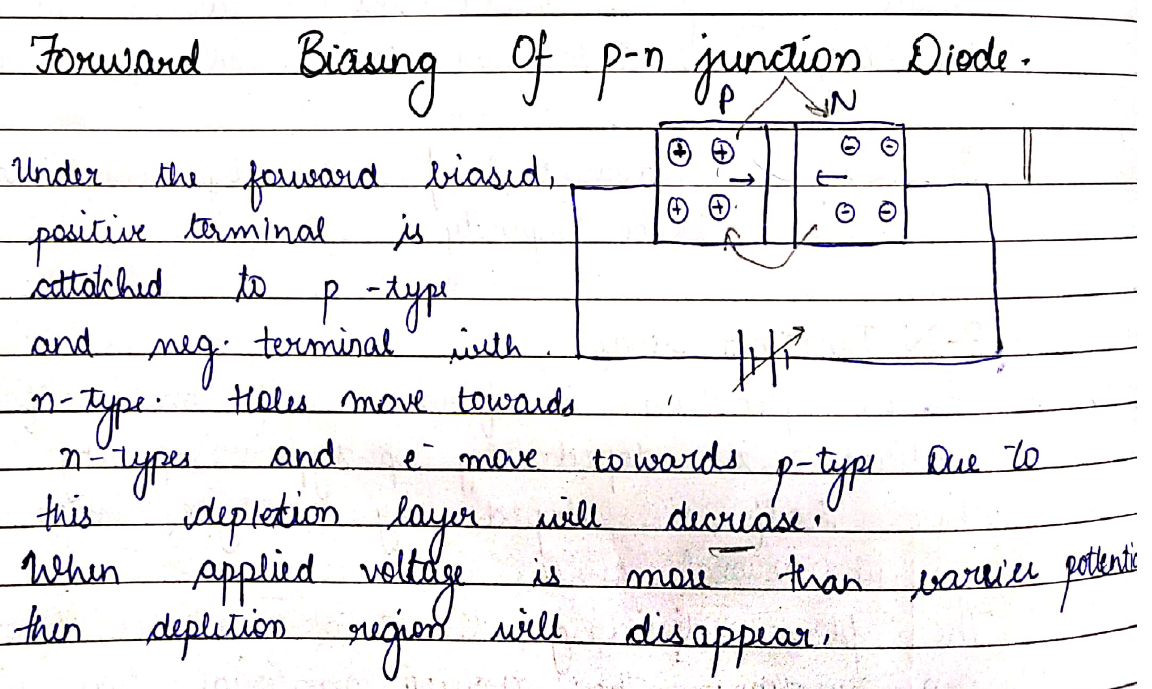 Forward Biasing Of p-n junction Diode.
P N
Under the forward biased,
positive terminal is
attatched to p-type
and neg. terminal with
n-type. Holes move towards
n-types and e⁻ move towards p-type Due to
this depletion layer will decrease.
When applied voltage is more than barrier pottentic
then depletion region will disappear.